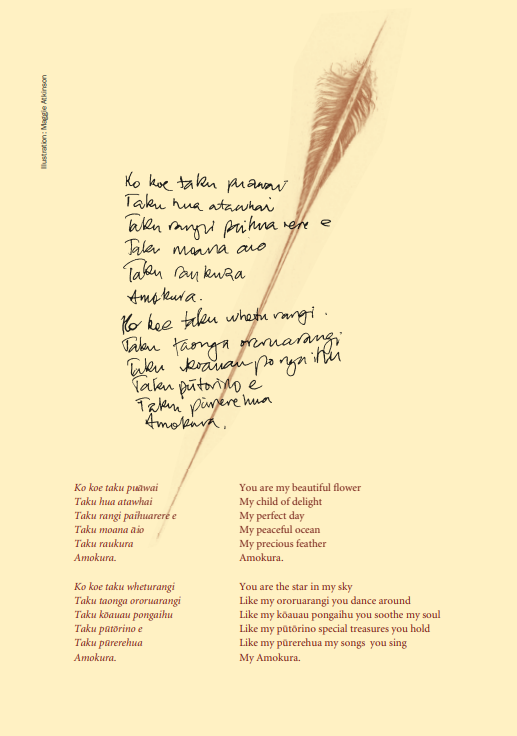 Illustration: Maggie Atkinson
Ko koe taku puawai
Taku hua atawhai
Taku rangi paihuarere e
Taku moana aio
Taku raukura
Amokura.
Ko koe taku whetu rangi.
Taku taonga ororuarangi
Taku koauau pongaihu
Taku pūtorino e
Taku pūrerehua
Amokura.
Ko koe taku puāwai
Taku hua atawhai
Taku rangi paihuarere e
Taku moana āio
Taku raukura
Amokura.
Ko koe taku wheturangi
Taku taonga ororuarangi
Taku kōauau pongaihu
Taku pūtōrino e
Taku pūrerehua
Amokura.
You are my beautiful flower
My child of delight
My perfect day
My peaceful ocean
My precious feather
Amokura.
You are the star in my sky
Like my ororuarangi you dance around
Like my kōauau pongaihu you soothe my soul
Like my pūtōrino special treasures you hold
Like my pūrerehua my songs you sing
My Amokura.